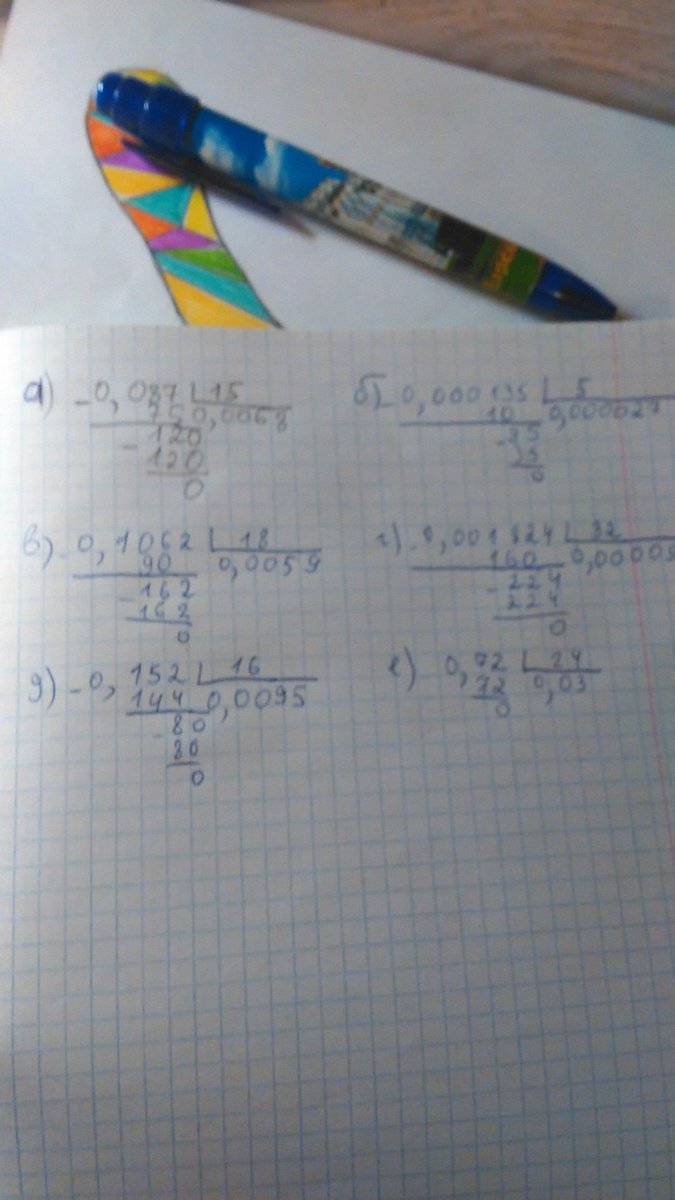 а) -0,087 15
75 0,0068
-120
120
0
б) -0,000135 5
10 0,000027
-35
35
0
в) -0,1062 18
90 0,0059
-162
162
0
г) -0,001824 32
160 0,00005
-224
224
0
д) -0,152 16
144 0,0095
-80
80
0
е) 0,72 24
72 0,03
0